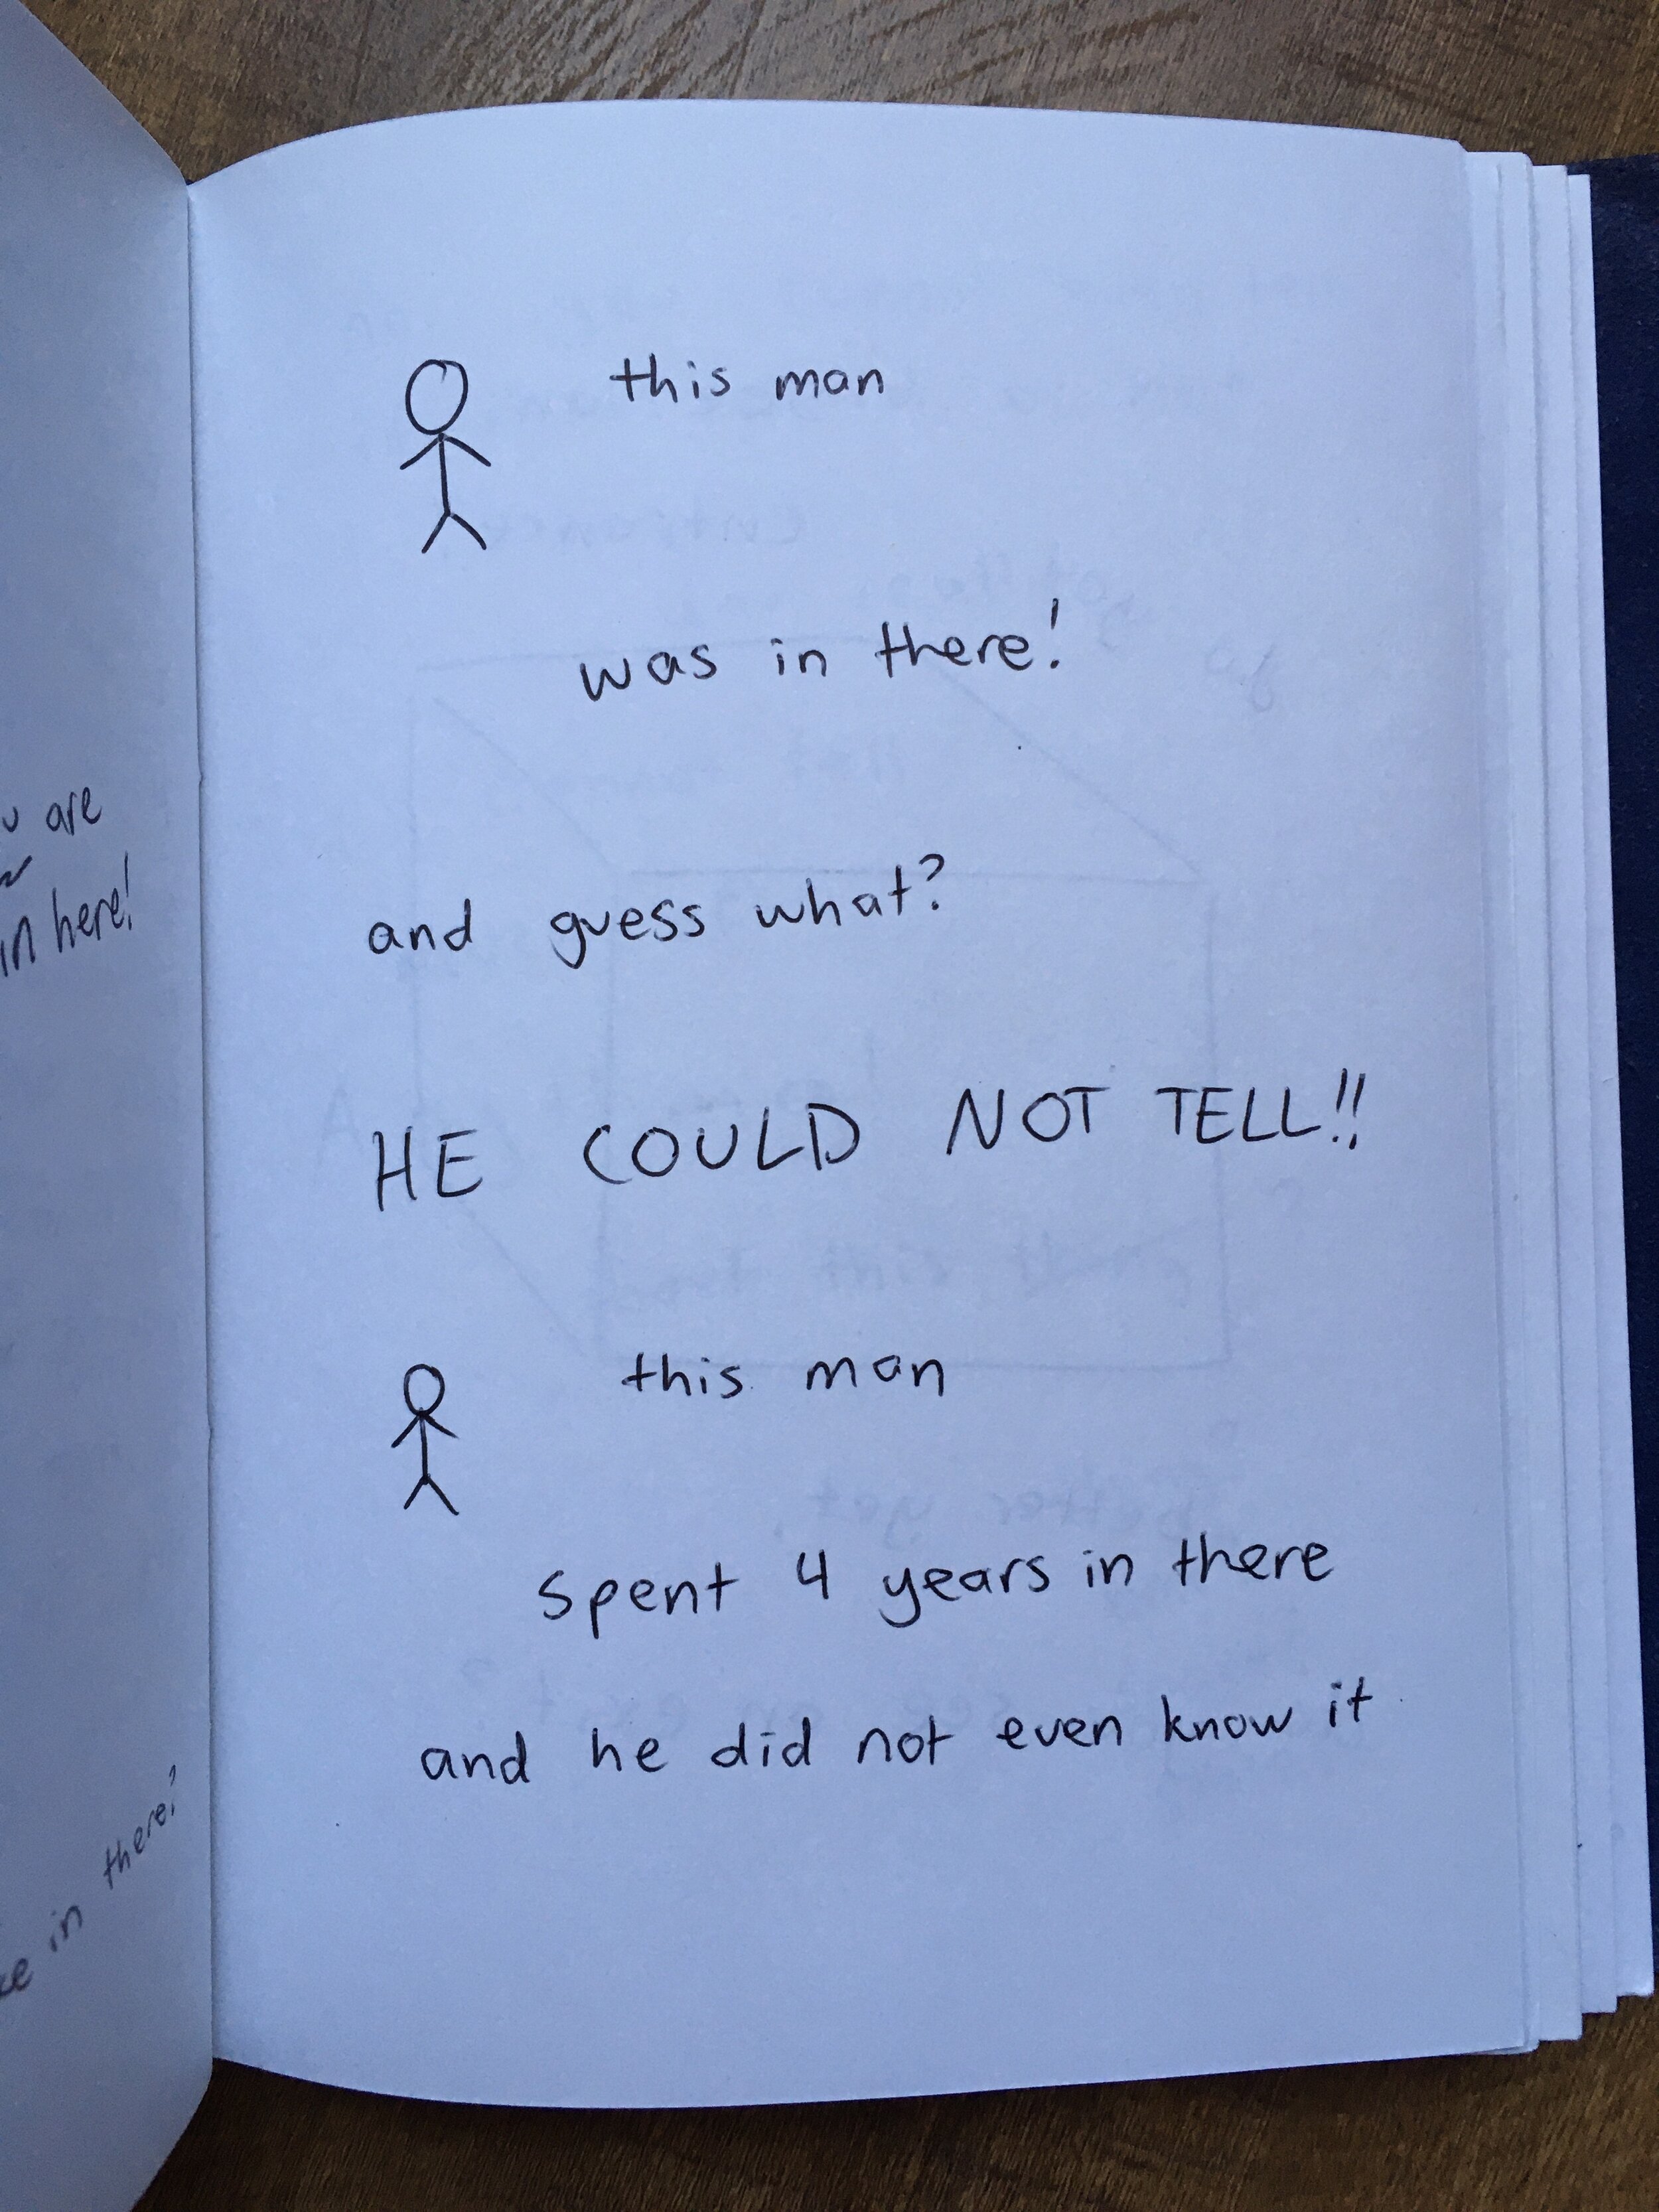 u are
in here!
in there?
this man
was in there!
and guess what?
HE COULD NOT TELL!!
this man
spent 4 years in there
and he did not even know it